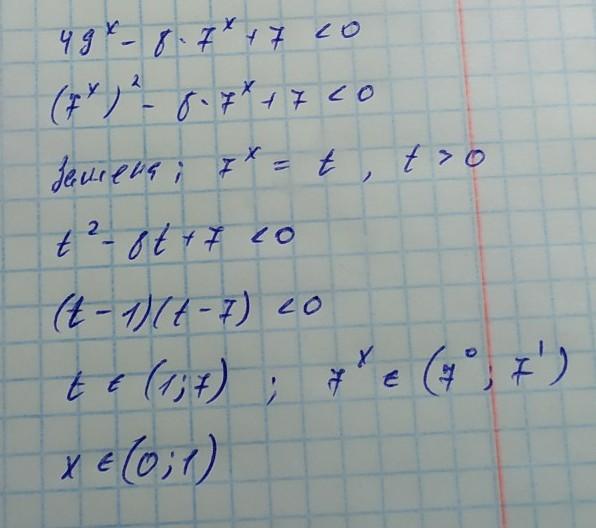 49ˣ - 8 · 7ˣ + 7 < 0
(7ˣ)² - 8 · 7ˣ + 7 < 0
Замена; 7ˣ = t, t > 0
t² - 8t + 7 < 0
(t - 1)(t - 7) < 0
t ∈ (1; 7) ; 7ˣ ∈ (7⁰; 7¹)
x ∈ (0; 1)